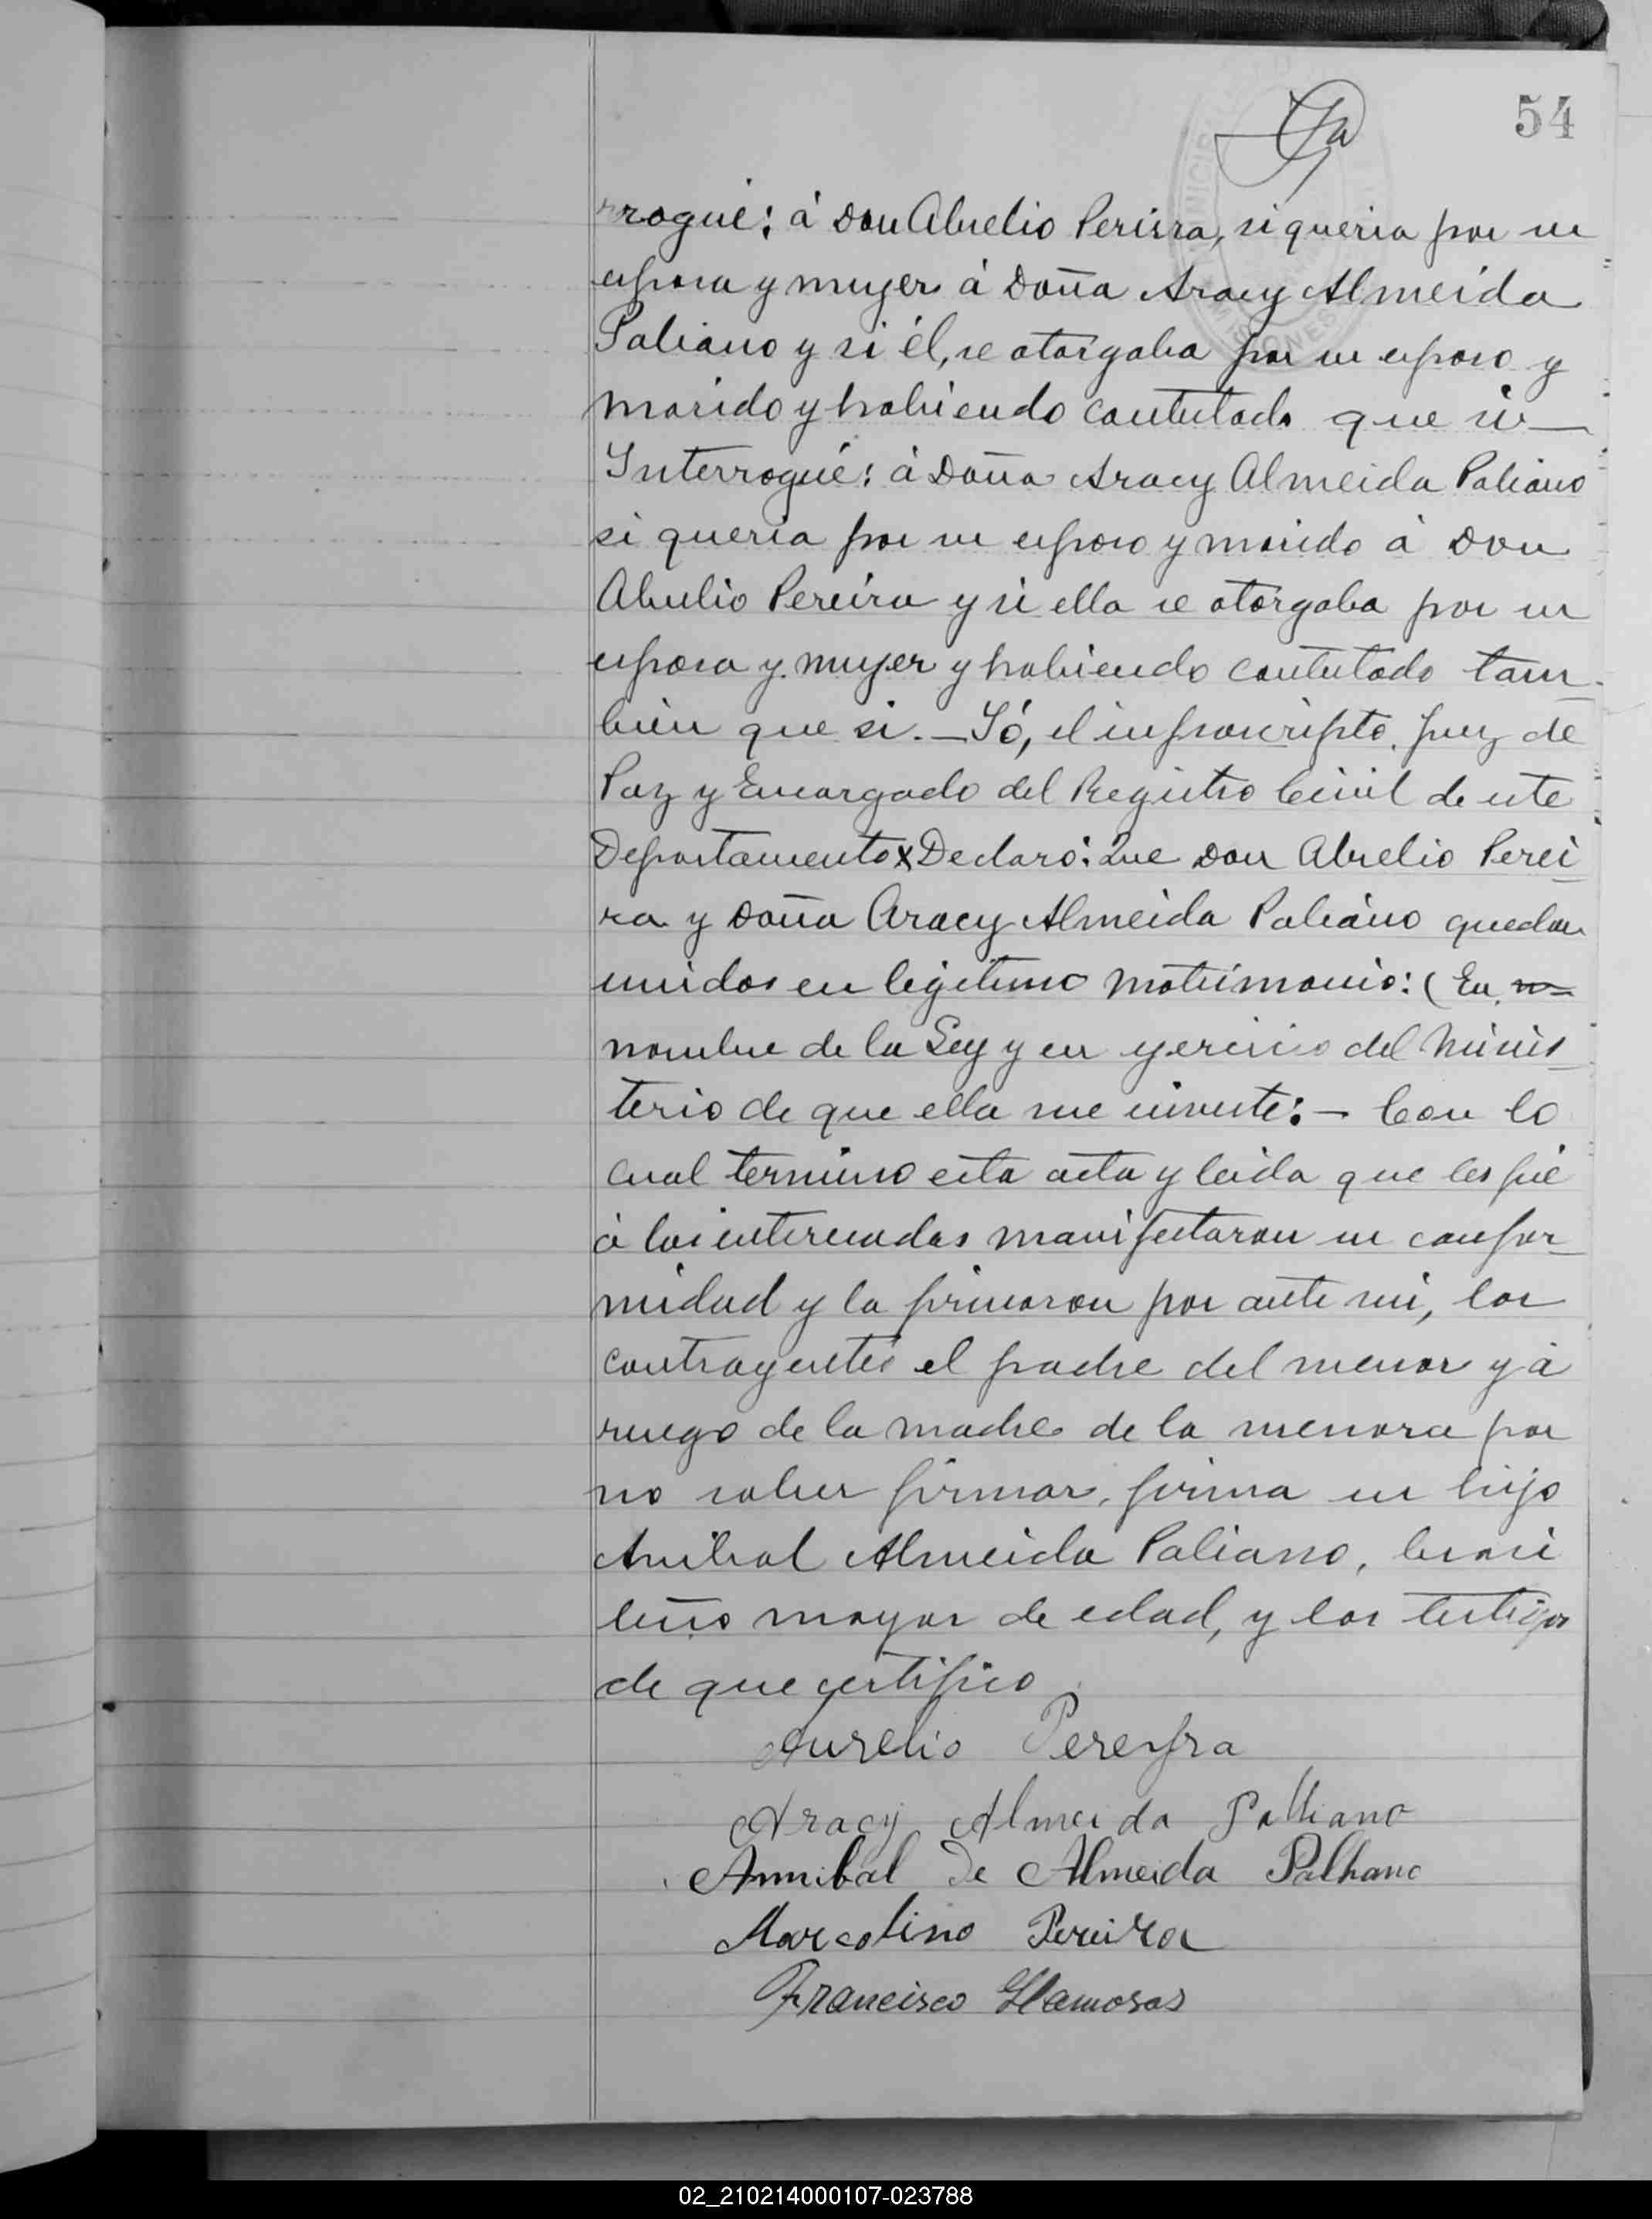 54
rrogué: á Don Abrelio Pereira, si queria por su
esposa y mujer á Doña Aracy Almeida
Paliano y si él, se otorgaba por su esposo y
marido y habiendo contestado que si—
Interrogué: á Doña Aracy Almeida Paliano
si queria por su esposo y marido á Don
Abrelio Pereira y si ella se otorgaba por su
esposa y mujer y habiendo contestado tam-
bien que si.—Yó, el infrascripto Juez de
Paz y Encargado del Registro Civil de este
Departamento x Declaro: Que Don Abrelio Perei
ra y Doña Aracy Almeida Paliano quedan
unidos en legitimo matrimonio: (En
nombre de la Ley y en ejercicio del Minis
terio de que ella me inviste:— Con lo
cual termino esta acta y leida que les fué
á los interesados manifestaron su confor-
midad y la firmaron por ante mi, los
contrayentes el padre del menor y á
ruego de la madre de la menora por
no saber firmar, firma su hijo
Anibal Almeida Paliano, brasi
leño mayor de edad, y los testigos
de que certifico
Aurelio Pereyra
Aracy Almeida Palhano
Annibal de Almeida Palhano
Marcolino Pereira
Francisco Llamosas
02_210214000107-023788